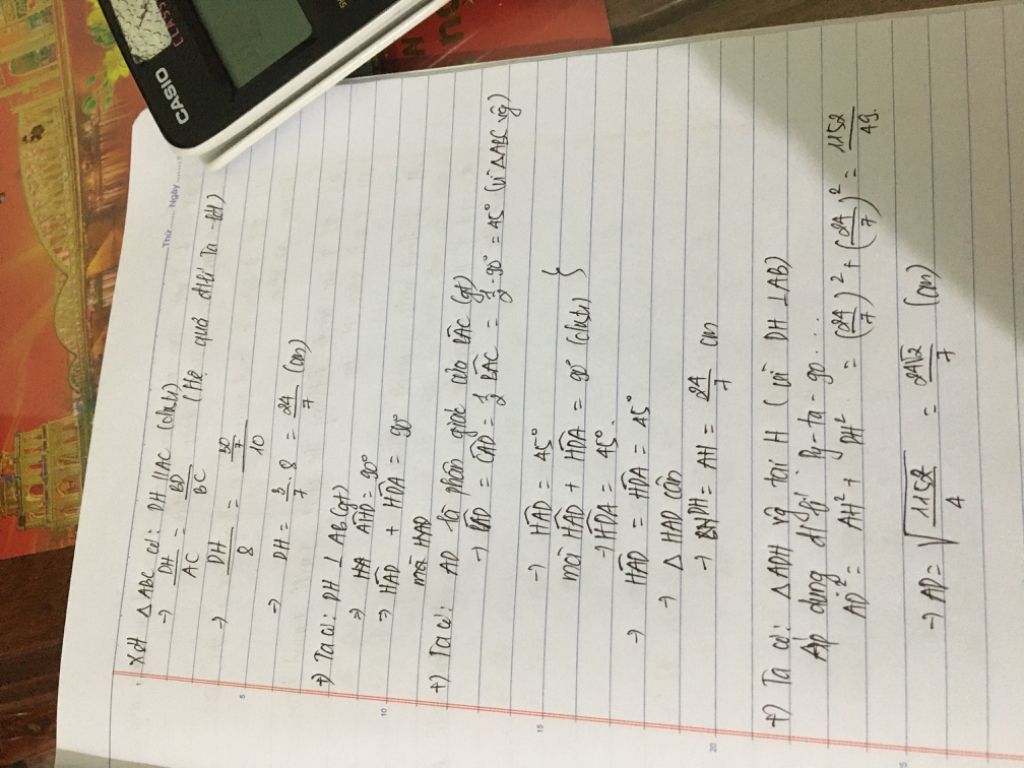 CASIO
Thứ ..... Ngày .....
Xét △ABC có: DH // AC (cmtr)
→ DH/AC = BD/BC (Hệ quả đlí Ta-lét)
→ DH/8 = 30/7/10
→ DH = 3/7 . 8 = 24/7 (cm)
+) Ta có: DH ⊥ AB (gt)
→ AHD = 90°
→ HAD + HDA = 90°
mà HAD
+) Ta có: AD là phân giác của BAC (gt)
→ BAD = CAD = 1/2 BAC = 1/2 . 90° = 45° (vì △ABC vg)
→ HAD = 45°
mà HAD + HDA = 90° (cmtr) }
→ HDA = 45°.
→ HAD = HDA = 45°
→ △HAD cân
→ DH = AH = 24/7 cm
+) Ta có: △ADH vg tại H (vì DH ⊥ AB)
Áp dụng đlí Py-ta-go....
AD² = AH² + DH² = (24/7)² + (24/7)² = 1152/49.
→ AD = √1152/4 = 24√2/7 (cm)
5
10
15
20